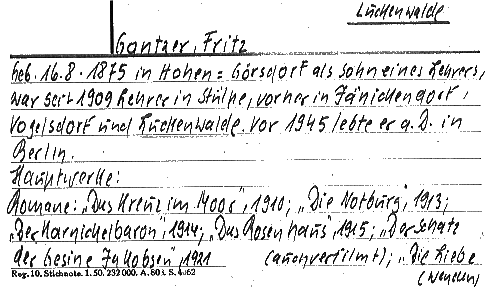 Luckenwalde
Gantzer, Fritz
geb. 16.8.1875 in Hohen=Görsdorf als Sohn eines Lehrers,
war seit 1909 Lehrer in Stülpe, vorher in Jänickendorf,
Vogelsdorf und Luckenwalde. Vor 1945 lebte er a.D. in
Berlin.
Hauptwerke:
Romane: „Das Kreuz im Moor", 1910; „Die Notburg", 1913;
„Der Karnickelbaron", 1914; „Das Rosenhaus", 1915; „Der Schatz
der Gesine Jakobsen", 1921 (auch verfilmt); „Die Liebe
Reg. 10. Stichnote. 1. 50. 232000. A. 80 i. S. 4062
(wenden)